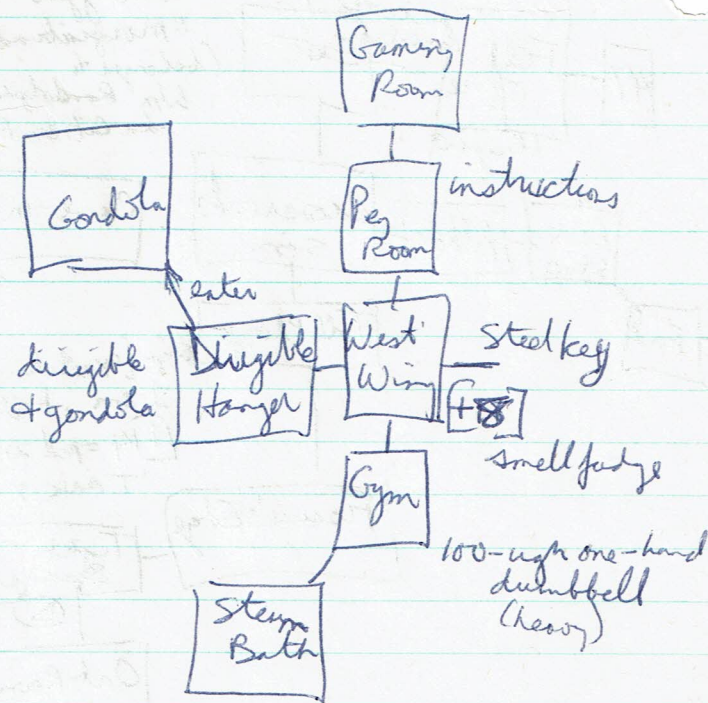 Gaming
Room
Gondola
Peg
Room
instructions
enter
dirigible
& gondola
Dirigible
Hanger
West
Wing
Steel key
smell fudge
Gym
100-ugh one-hand
dumbbell
(heavy)
Steam
Bath